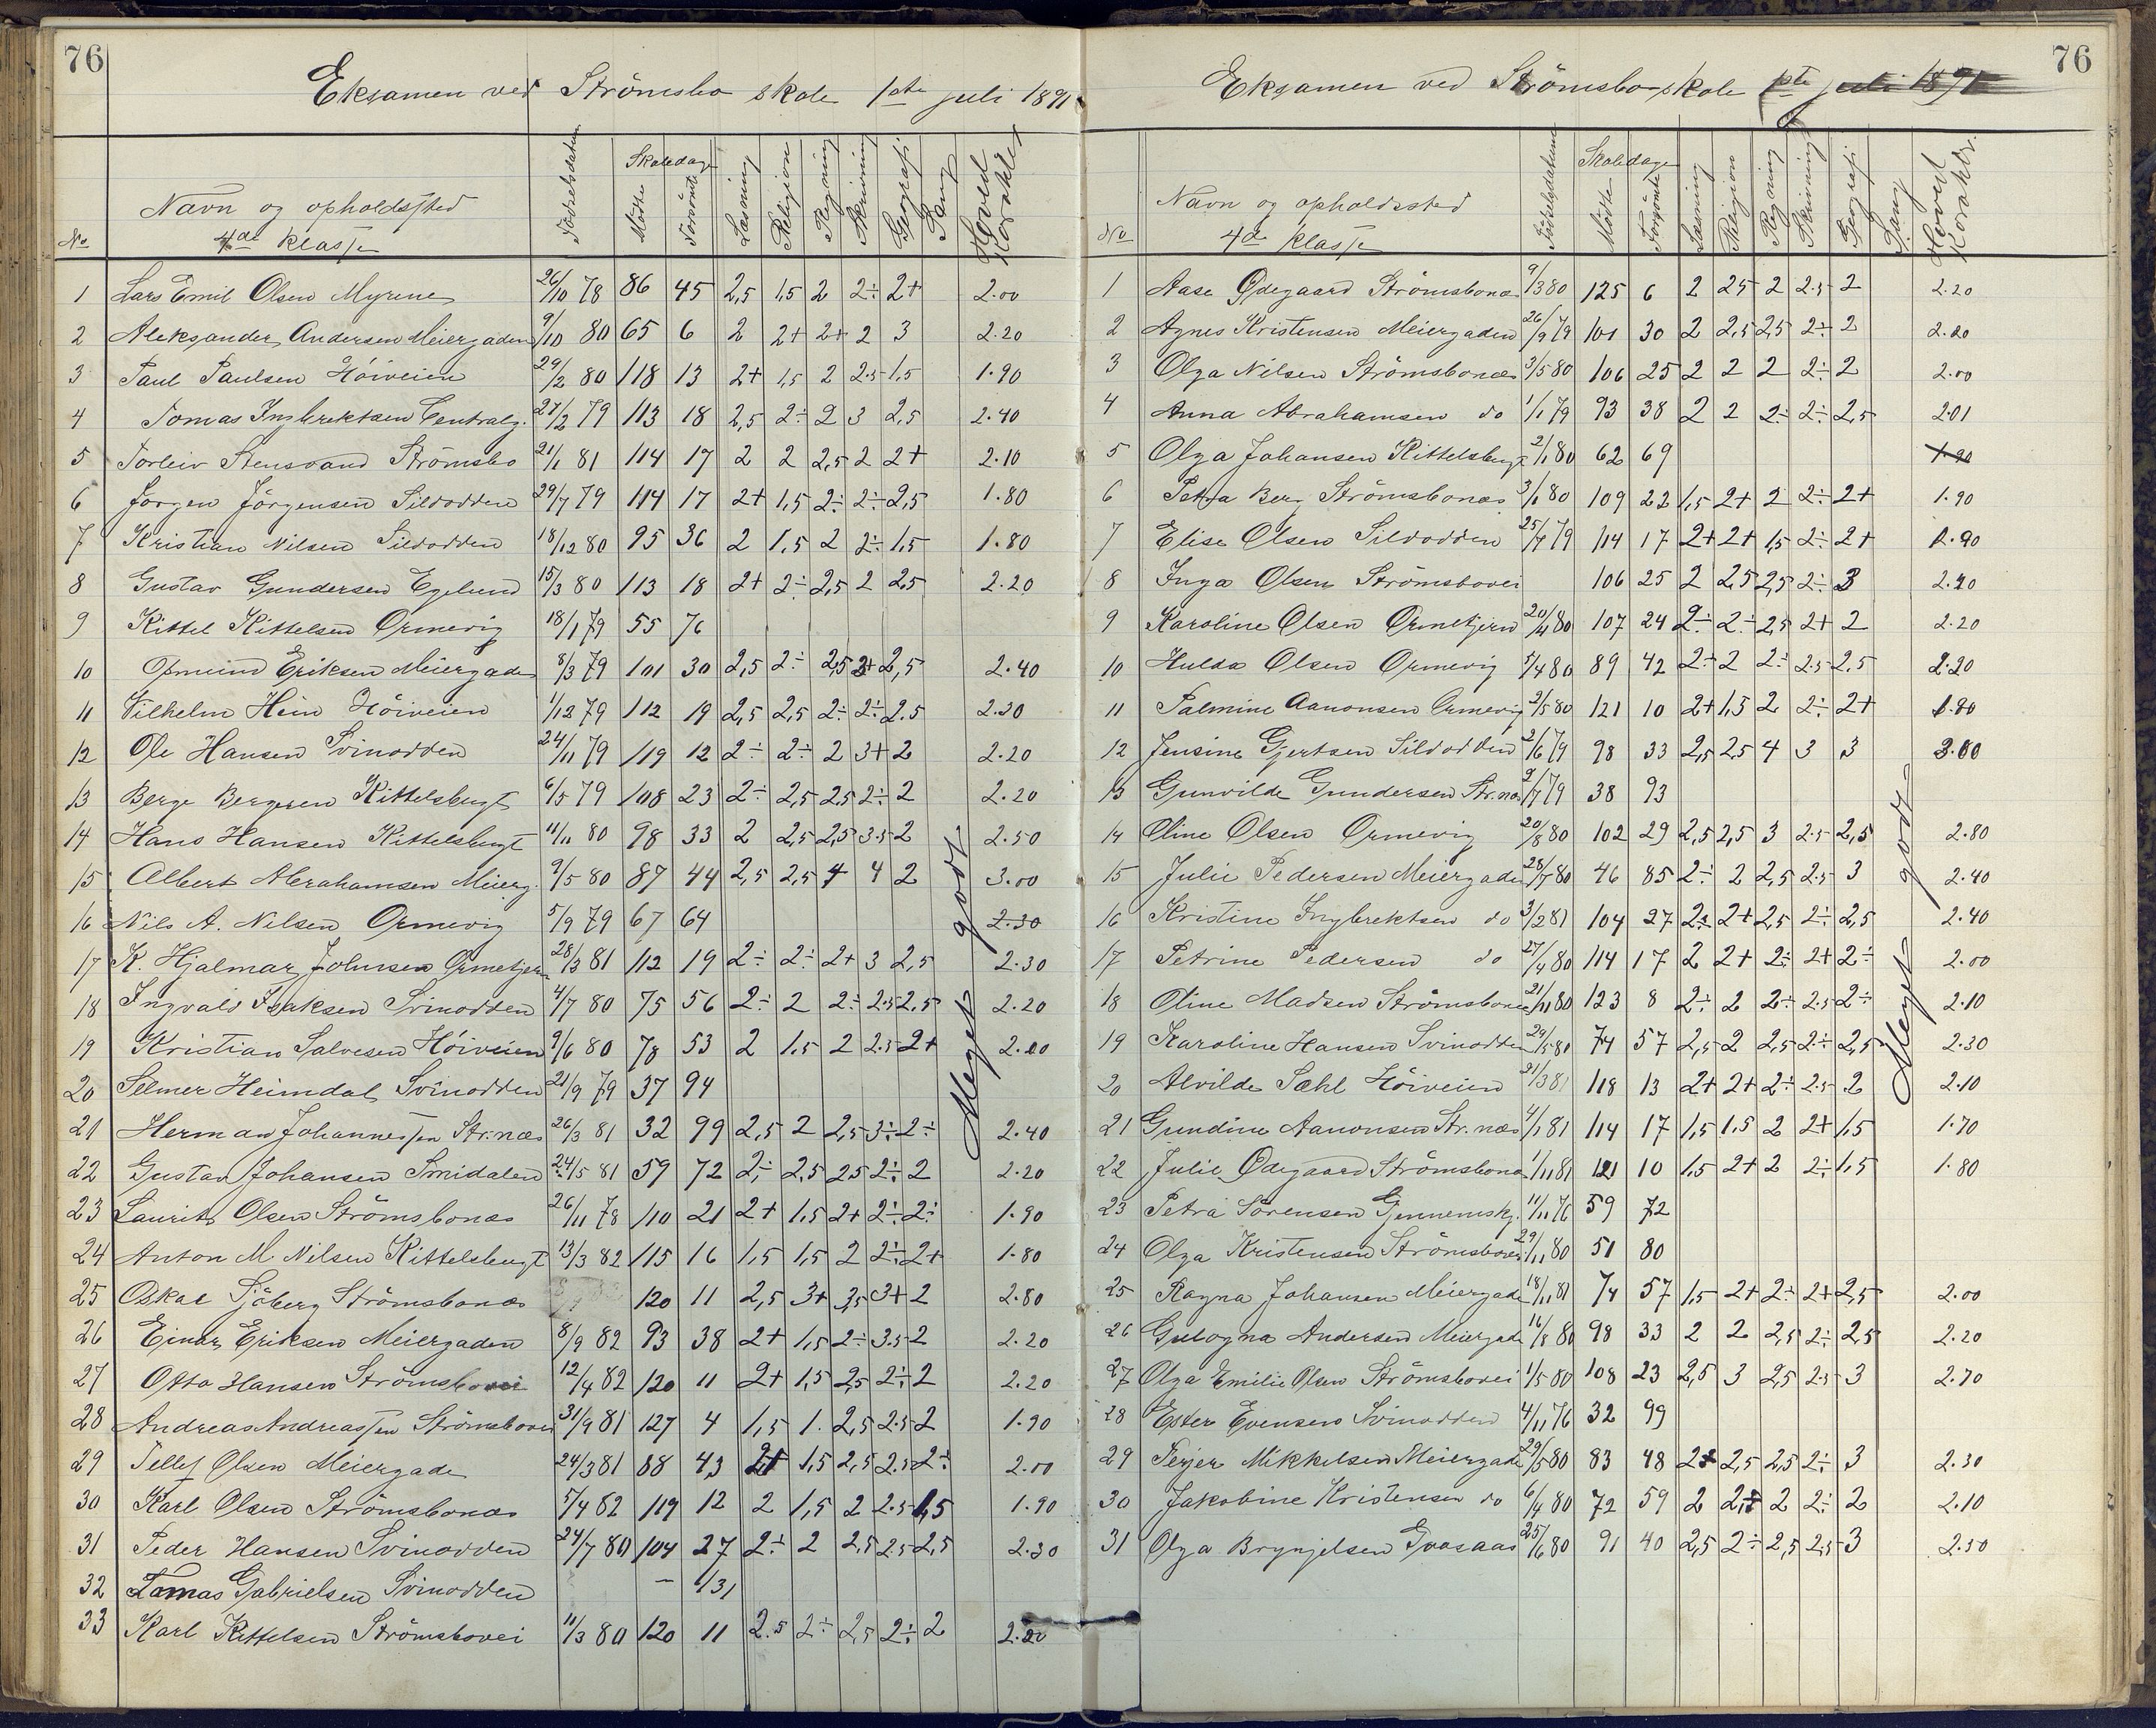 76
Eksamen ved Strömsbo skole 1ste juli 1891
No
Navn og opholdssted
4de klasse
Fødselsdatum
Skoledage
Mødte
Forsömte
Læsning
Religion
Regning
Skrivning
Geografi
Sang
Hoved Karakter
1 Lars Emil Olsen Myrene 26/10 78 86 45 2,5 1,5 2 2÷ 2+ 2.00
2 Aleksander Andersen Meiergaden 9/10 80 65 6 2 2+ 2+ 2 3 2.20
3 Paul Paulsen Höiveien 29/2 80 118 13 2+ 1,5 2 2.5 1,5 1.90
4 Tomas Ingbrektsen Centralg. 27/2 79 113 18 2,5 2÷ 2 3 2,5 2.40
5 Torleiv Stensvand Strömsbo 21/1 81 114 17 2 2 2,5 2 2+ 2.10
6 Jørgen Jörgensen Sildodden 29/7 79 114 17 2+ 1,5 2÷ 2÷ 2,5 1.80
7 Kristian Nilsen Sildodden 18/12 80 95 36 2 1,5 2 2÷ 1,5 1.80
8 Gustav Gundersen Egelund 15/3 80 113 18 2+ 2÷ 2,5 2 2,5 2.20
9 Kittel Kittelsen Ormevig 18/1 79 55 76
10 Osmund Eriksen Meiergaden 8/3 79 101 30 2,5 2÷ 2,5 3+ 2,5 2.40
11 Vilhelm Hein Höiveien 1/12 79 112 19 2,5 2,5 2÷ 2÷ 2.5 2.30
12 Ole Hansen Svinodden 24/11 79 119 12 2÷ 2÷ 2 3+ 2 2.20
13 Berge Bergesen Kittelsbugt 6/5 79 108 23 2÷ 2,5 2,5 2÷ 2 2.20
14 Hans Hansen Kittelsbugt 11/11 80 98 33 2 2,5 2,5 3.5 2 2.50
15 Albert Abrahamsen Meierg. 9/5 80 87 44 2,5 2,5 4 4 2 3.00
16 Nils A. Nilsen Ormevig 5/9 79 67 64 2.30
17 K. Hjalmar Johnsen Ormetjern 28/3 81 112 19 2÷ 2÷ 2+ 3 2,5 2.30
18 Ingvald Isaksen Svinodden 4/7 80 75 56 2÷ 2 2÷ 2.5 2,5 2.20
19 Kristian Salvesen Höiveien 9/6 80 78 53 2 1.5 2 2.5 2+ 2.00
20 Selmer Heimdal Svinodden 21/9 79 37 94
21 Herman Johannessen Str.næs 26/3 81 32 99 2,5 2 2,5 3÷ 2÷ 2.40
22 Gustav Johansen Smidalen 24/5 81 59 72 2÷ 2,5 2,5 2÷ 2 2.20
23 Laurits Olsen Strömsbonæs 26/11 78 110 21 2+ 1,5 2+ 2÷ 2÷ 1.90
24 Anton M. Nilsen Kittelsbugt 13/3 82 115 16 1,5 1,5 2 2÷ 2+ 1.80
25 Oskar Sjöberg Strömsbonæs 120 11 2,5 3+ 3,5 3+ 2 2.80
26 Einar Eriksen Meiergaden 8/9 82 93 38 2+ 1,5 2÷ 3.5 2 2.20
27 Otto Hansen Strömsbovei 12/4 82 120 11 2+ 1,5 2,5 2÷ 2 2.20
28 Andreas Andreassen Strömsbovei 31/9 81 127 4 1,5 1. 2,5 2.5 2 1.90
29 Tellef Olsen Meiergade 24/3 81 88 43 2+ 1,5 2,5 2.5 2÷ 2.00
30 Karl Olsen Strömsbonæs 5/4 82 119 12 2 1,5 2 2.5 1,5 1.90
31 Peder Hansen Svinodden 24/7 80 104 27 2÷ 2 2,5 2.5 2,5 2.30
32 Tomas Gabrielsen Svinodden – 131
33 Karl Kittelsen Strömsbovei 11/3 80 120 11 2.5 2÷ 2,5 2÷ 2 2.20
Meget godt
76
Eksamen ved Strömsbo skole 1ste juli 1891
No
Navn og opholdssted
4de klasse
Födselsdatum
Skoledage
Mødte
Forsömte
Læsning
Religion
Regning
Skrivning
Geografi
Sang
Hoved Karakter
1 Aase Ødegaard Strömsbonæs 9/3 80 125 6 2 2,5 2 2.5 2 2.20
2 Agnes Kristensen Meiergaden 26/9 79 101 30 2 2,5 2,5 2÷ 2 2.20
3 Olga Nilsen Strömsbonæs 3/5 80 106 25 2 2 2 2÷ 2 2.00
4 Anna Abrahamsen do 1/1 79 93 38 2 2 2÷ 2÷ 2,5 2.01
5 Olga Johansen Kittelsbugt 2/1 80 62 69 1.90
6 Petra Berg Strömsbonæs 3/1 80 109 22 1,5 2+ 2 2÷ 2+ 1.90
7 Elise Olsen Sildodden 25/7 79 114 17 2+ 2+ 1,5 2÷ 2+ 1.90
8 Inga Olsen Strömsbovei 106 25 2 2,5 2,5 2÷ 3 2.40
9 Karoline Olsen Ormetjern 20/4 80 107 24 2÷ 2÷ 2,5 2+ 2 2.20
10 Hulda Olsen Ormevig 5/4 80 89 42 2÷ 2 2÷ 2.5 2,5 2.20
11 Palmine Aanonsen Ormevig 2/5 80 121 10 2+ 1,5 2 2÷ 2+ 1.90
12 Jensine Gjertsen Sildodden 2/6 79 98 33 2,5 2,5 4 3 3 3.00
13 Gunvilde Gundersen Str.næs 9/7 79 38 93
14 Oline Olsen Ormevig 20/8 80 102 29 2,5 2,5 3 2.5 2,5 2.80
15 Julie Pedersen Meiergaden 28/7 80 46 85 2÷ 2 2,5 2.5 3 2.40
16 Kristine Ingbrektsen do 3/2 81 104 27 2÷ 2+ 2,5 2÷ 2,5 2.40
17 Petrine Pedersen do 27/4 80 114 17 2 2+ 2÷ 2+ 2÷ 2.00
18 Oline Madsen Strömsbonæs 21/11 80 123 8 2÷ 2 2÷ 2.5 2÷ 2.10
19 Karoline Hansen Svinodden 29/5 80 74 57 2,5 2 2,5 2÷ 2,5 2.30
20 Alvilde Sæhl Höiveien 31/3 81 118 13 2+ 2+ 2÷ 2.5 2 2.10
21 Gundine Aanonsen Str.næs 4/1 81 114 17 1,5 1,5 2 2+ 1,5 1.70
22 Julie Ødegaard Strömsbonæs 1/11 81 121 10 1,5 2+ 2 2÷ 1,5 1.80
23 Petra Sörensen Gjennemskj. 11/11 76 59 72
24 Olga Kristensen Strömsbovei 29/11 80 51 80
25 Ragna Johansen Meiergade 18/11 81 74 57 1,5 2+ 2÷ 2+ 2,5 2.00
26 Gubogna Andersen Meiergade 16/8 80 98 33 2 2 2,5 2÷ 2,5 2.20
27 Olga Emilie Olsen Strömsbovei 1/5 80 108 23 2,5 3 2,5 2.5 3 2.70
28 Ester Evensen Svinodden 4/11 76 32 99
29 Terjer Mikkelsen Meiergade 29/5 80 83 48 2+ 2,5 2,5 2÷ 3 2.30
30 Jakobine Kristensen do 6/4 80 72 59 2 2+ 2 2÷ 2 2.10
31 Olga Brynjelsen Gvasaas 25/6 80 91 40 2,5 2÷ 2,5 2,5 3 2.50
Meget godt